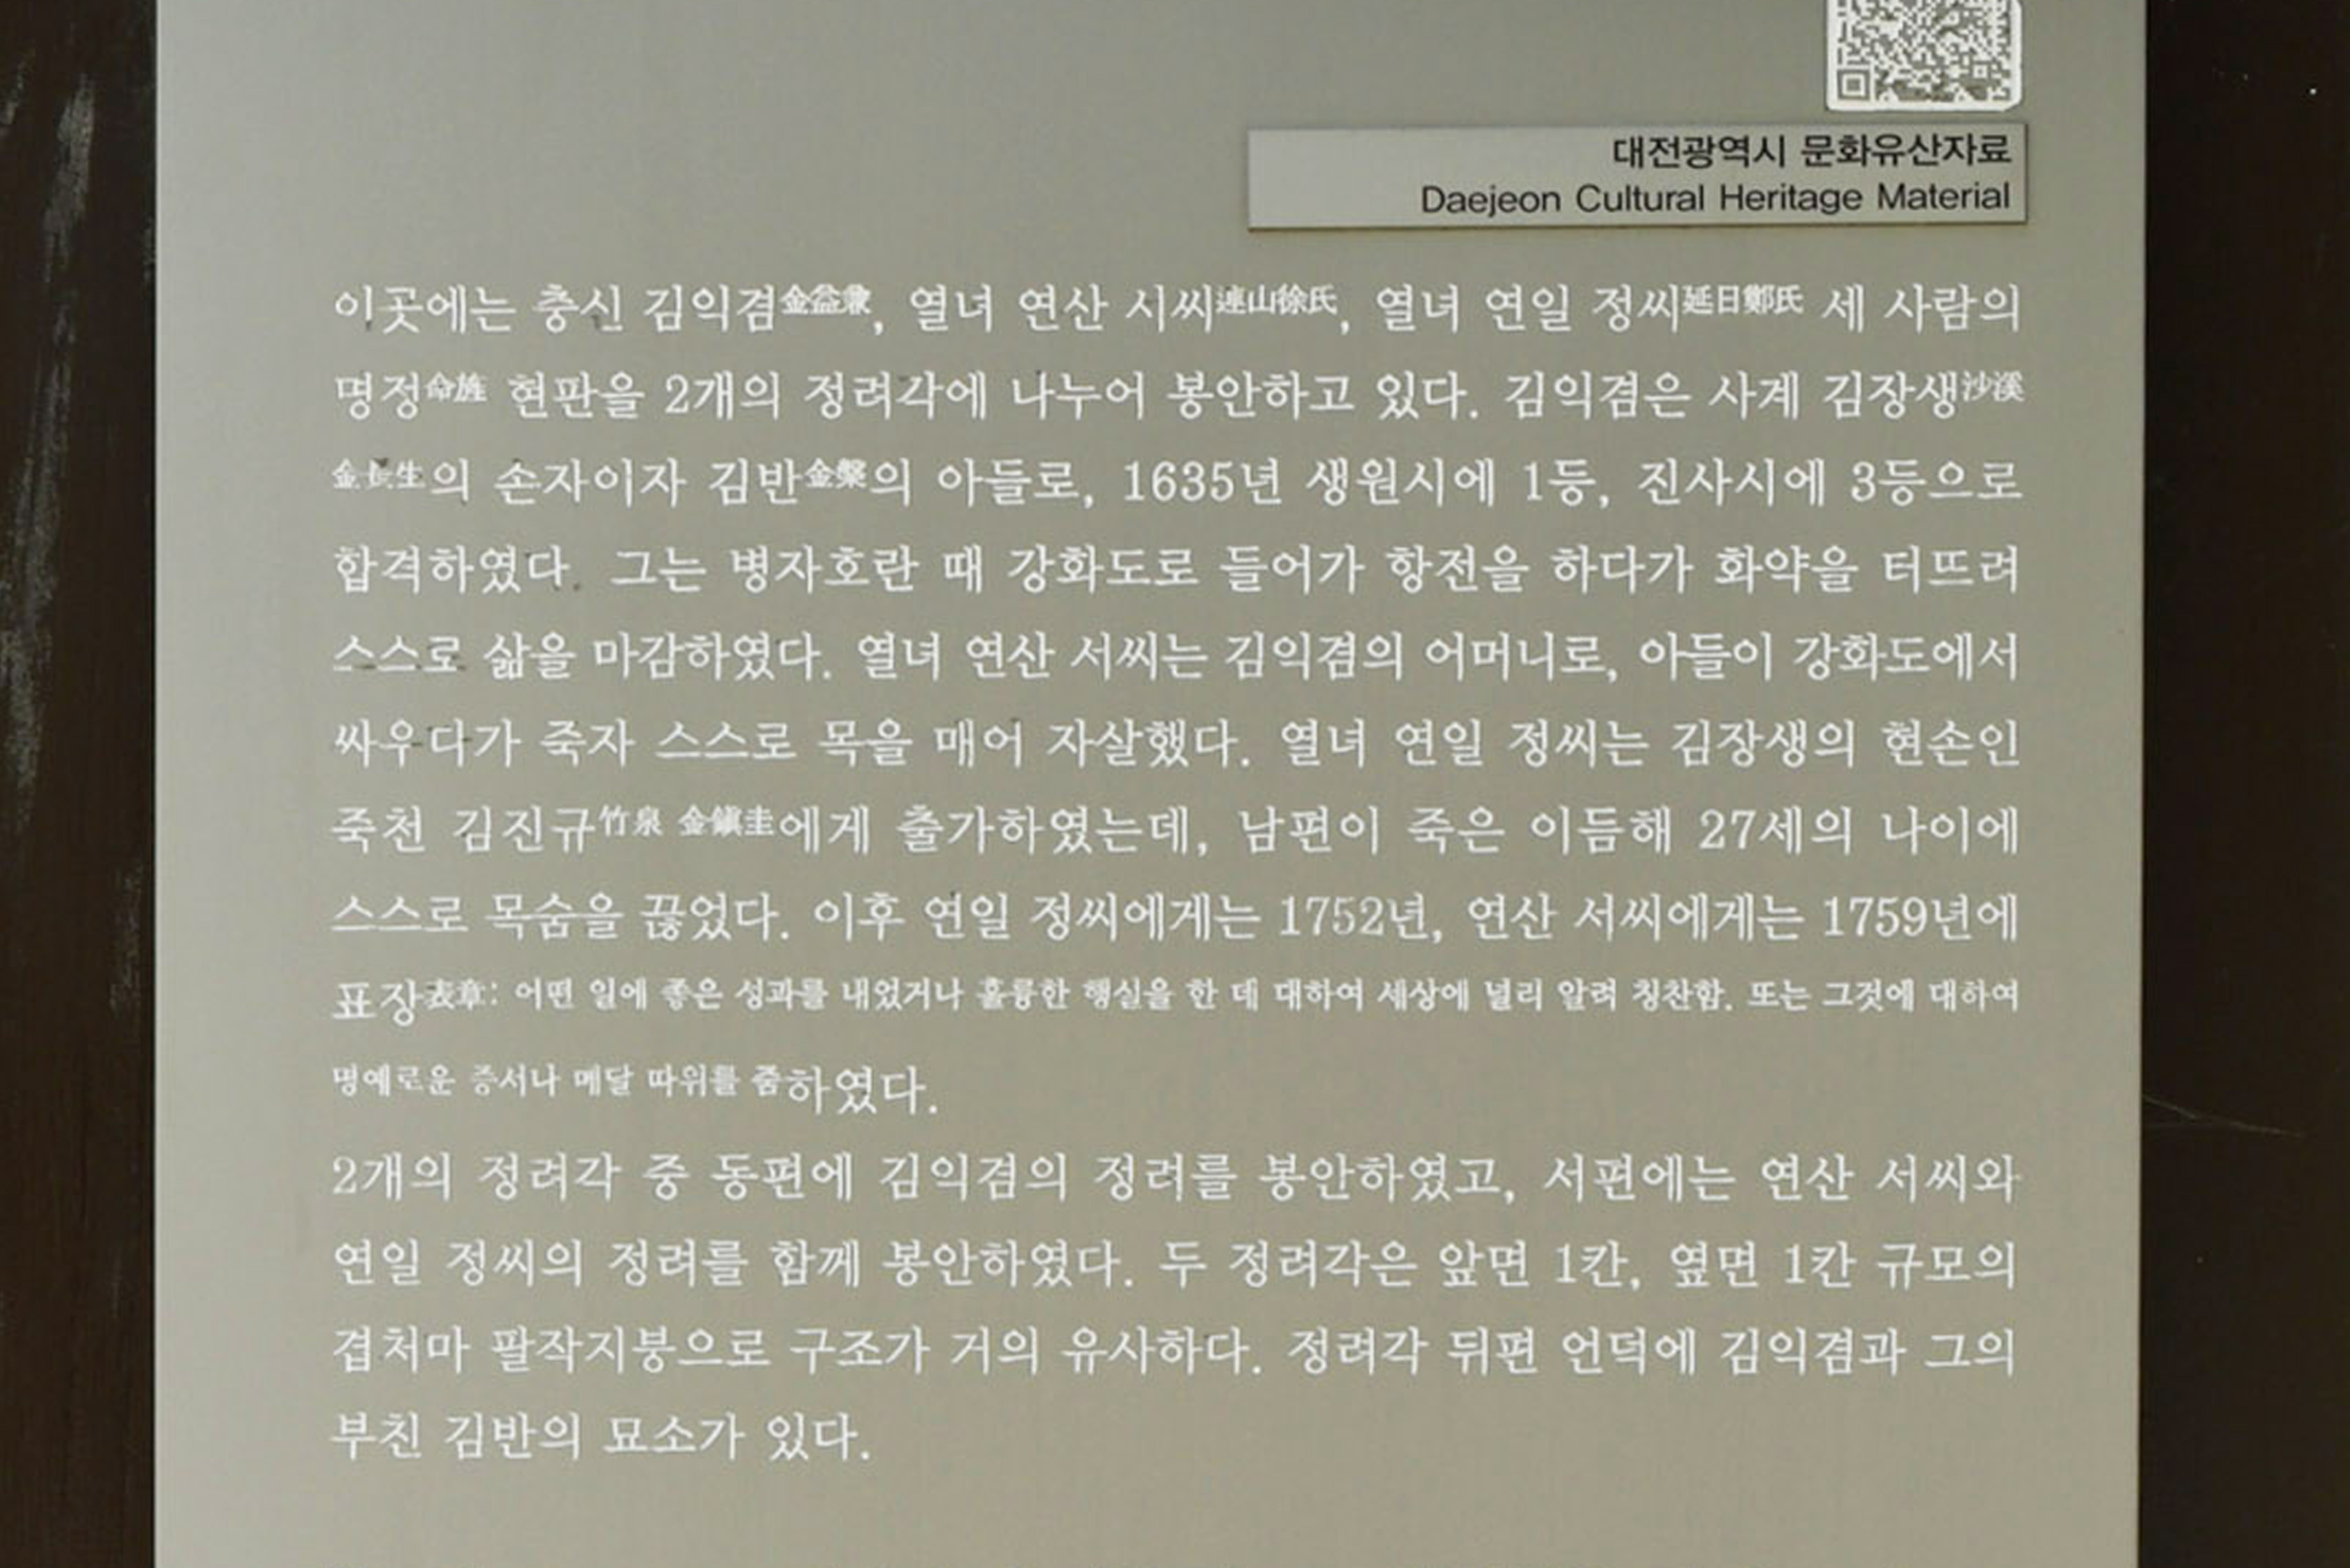 대전광역시 문화유산자료
Daejeon Cultural Heritage Material
이곳에는 충신 김익겸金益兼, 열녀 연산 시씨連山徐氏, 열녀 연일 정씨延日鄭氏 세 사람의
명정命旌 현판을 2개의 정려각에 나누어 봉안하고 있다. 김익겸은 사계 김장생沙溪
金長生의 손자이자 김반金槃의 아들로, 1635년 생원시에 1등, 진사시에 3등으로
합격하였다. 그는 병자호란 때 강화도로 들어가 항전을 하다가 화약을 터뜨려
스스로 삶을 마감하였다. 열녀 연산 서씨는 김익겸의 어머니로, 아들이 강화도에서
싸우다가 죽자 스스로 목을 매어 자살했다. 열녀 연일 정씨는 김장생의 현손인
죽천 김진규竹泉 金鎭圭에게 출가하였는데, 남편이 죽은 이듬해 27세의 나이에
스스로 목숨을 끊었다. 이후 연일 정씨에게는 1752년, 연산 서씨에게는 1759년에
표장表章: 어떤 일에 좋은 성과를 내었거나 훌륭한 행실을 한 데 대하여 세상에 널리 알려 칭찬함. 또는 그것에 대하여
명예로운 증서나 메달 따위를 줌하였다.
2개의 정려각 중 동편에 김익겸의 정려를 봉안하였고, 서편에는 연산 서씨와
연일 정씨의 정려를 함께 봉안하였다. 두 정려각은 앞면 1칸, 옆면 1칸 규모의
겹처마 팔작지붕으로 구조가 거의 유사하다. 정려각 뒤편 언덕에 김익겸과 그의
부친 김반의 묘소가 있다.